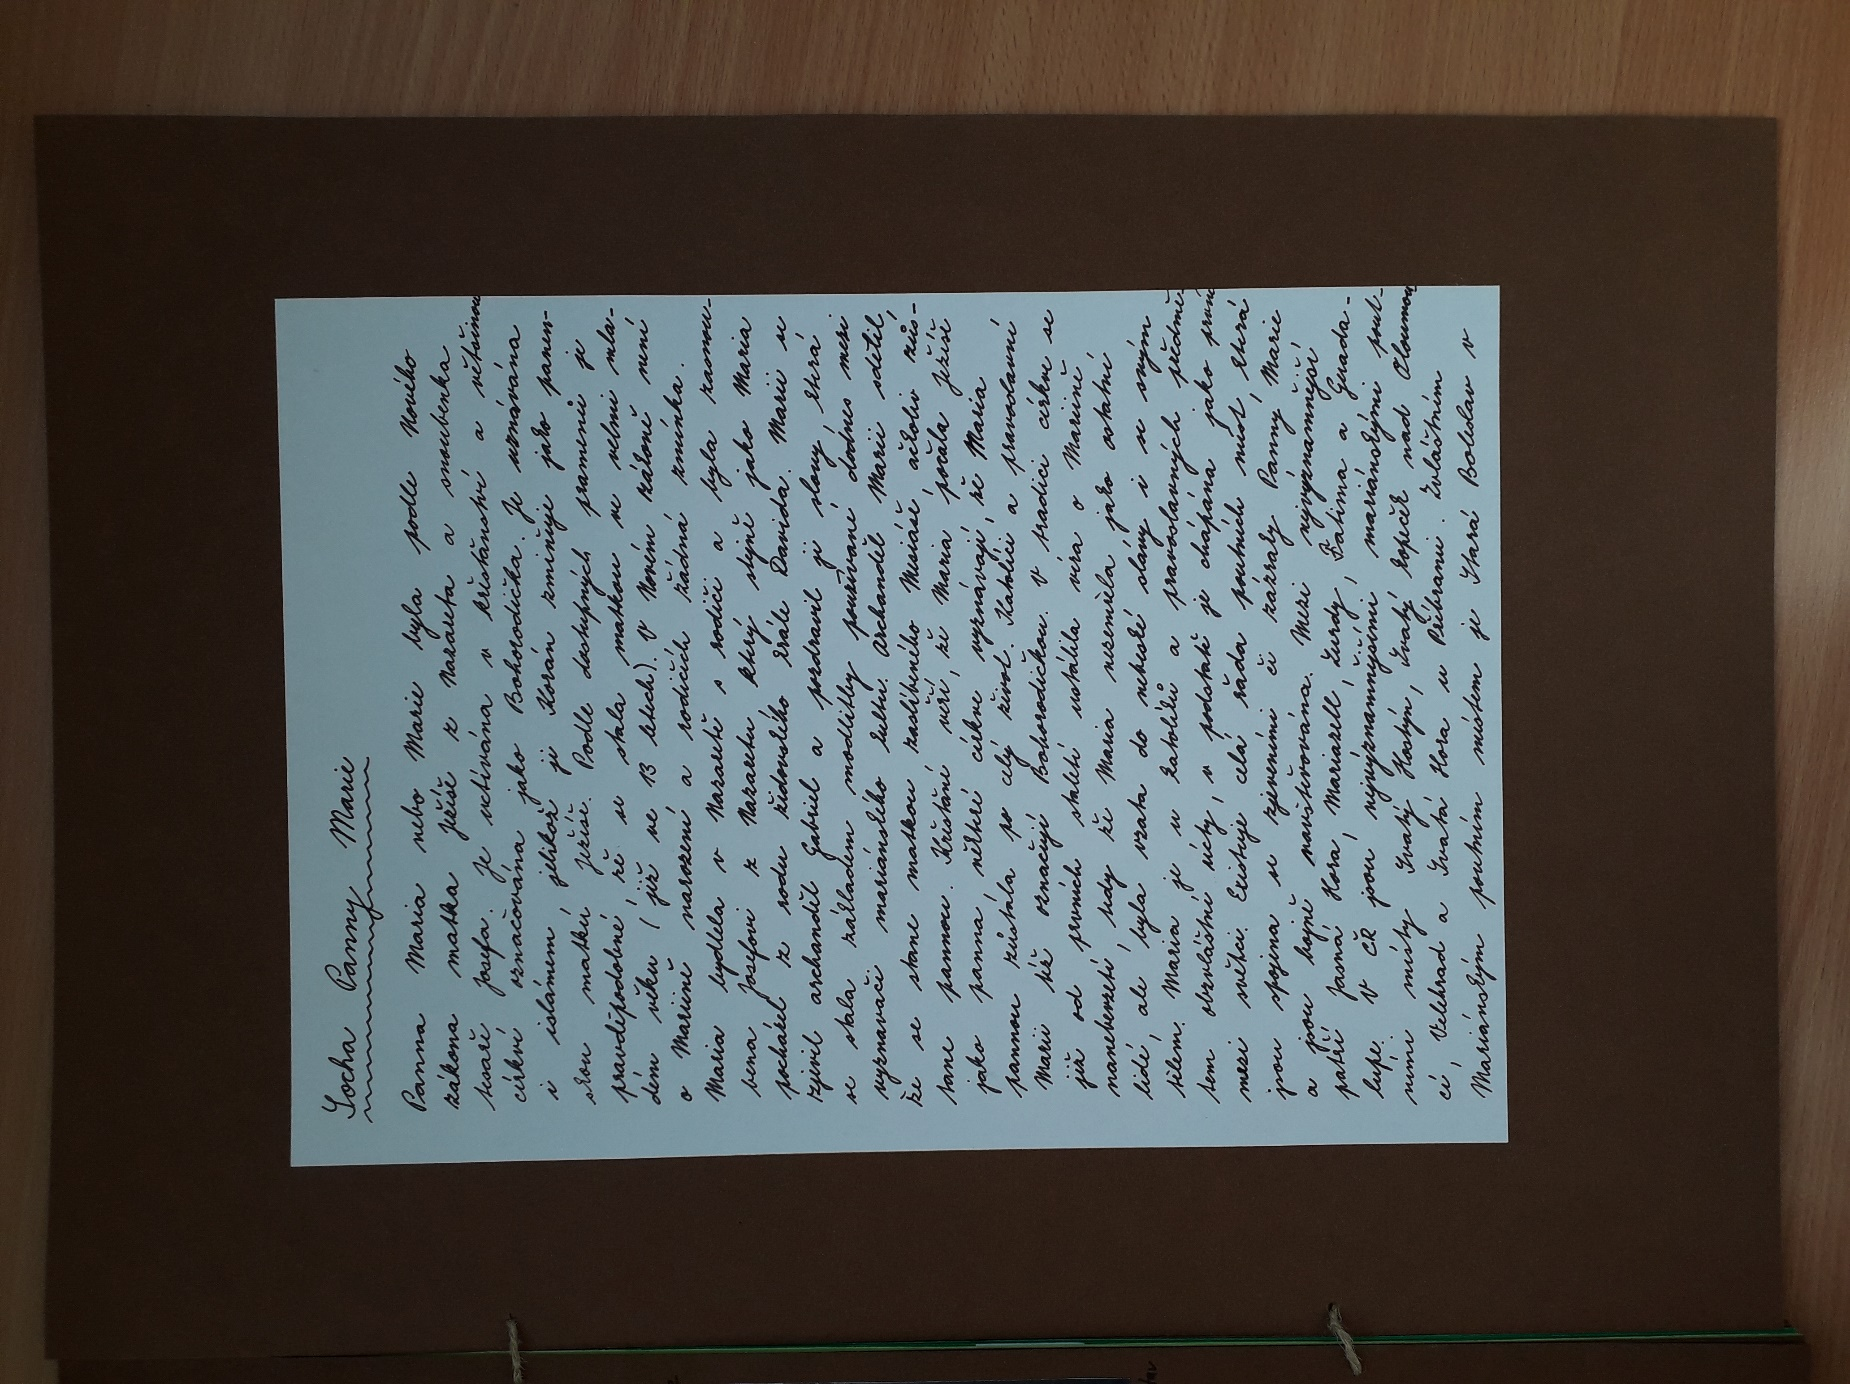 Socha Panny Marie
Panna Maria nebo Marie byla podle Nového
zákona matka Ježíše z Nazareta a snoubenka
tesaře Josefa. Je uctívána v křesťanství a většinou
církví označována jako Bohorodička. Je uznávána
i islámem, jelikož ji Korán zmiňuje jako panen-
skou matku Ježíše. Podle dostupných pramenů je
pravděpodobné, že se stala matkou ve velmi mla-
dém věku (již ve 13 letech). V Novém zákoně není
o Mariině narození a rodičích žádná zmínka.
Maria bydlela v Nazaretě s rodiči a byla zasnou-
bena Josefovi z Nazaretu, který stejně jako Maria
pocházel z rodu židovského krále Davida. Marii se
zjevil archanděl Gabriel a pozdravil ji slovy, která
se stala základem modlitby používané dodnes mezi
vyznavači mariánského kultu. Archanděl Marii sdělil,
že se stane matkou zaslíbeného Mesiáše, ačkoliv zůs-
tane pannou. Křesťané věří, že Maria počala Ježíše
jako panna, některé církve vyznávají, že Maria
pannou zůstala po celý život. Katolíci a pravoslavní
Marii též označují Bohorodičkou. V tradici církve se
již od prvních staletí ustálila víra o Mariině
nanebevzetí, tedy že Maria nezemřela jako ostatní
lidé, ale byla vzata do nebeské slávy i se svým
tělem. Maria je u katolíků a pravoslavných předmě-
tem obzvláštní úcty, v podstatě je chápána jako první
mezi světci. Existuje celá řada poutních míst, která
jsou spojena se zjeveními či zázraky Panny Marie
a jsou hojně navštěvována. Mezi nejvýznamnější
patří Jasná Hora, Mariazell, Lurdy, Fatima a Guada-
lupe. V ČR jsou nejvýznamnějšími mariánskými pout-
ními místy Svatý Hostýn, Svatý kopeček nad Olomou-
cí, Velehrad a Svatá Hora u Příbrami. Zvláštním
Mariánským poutním místem je Stará Boleslav v